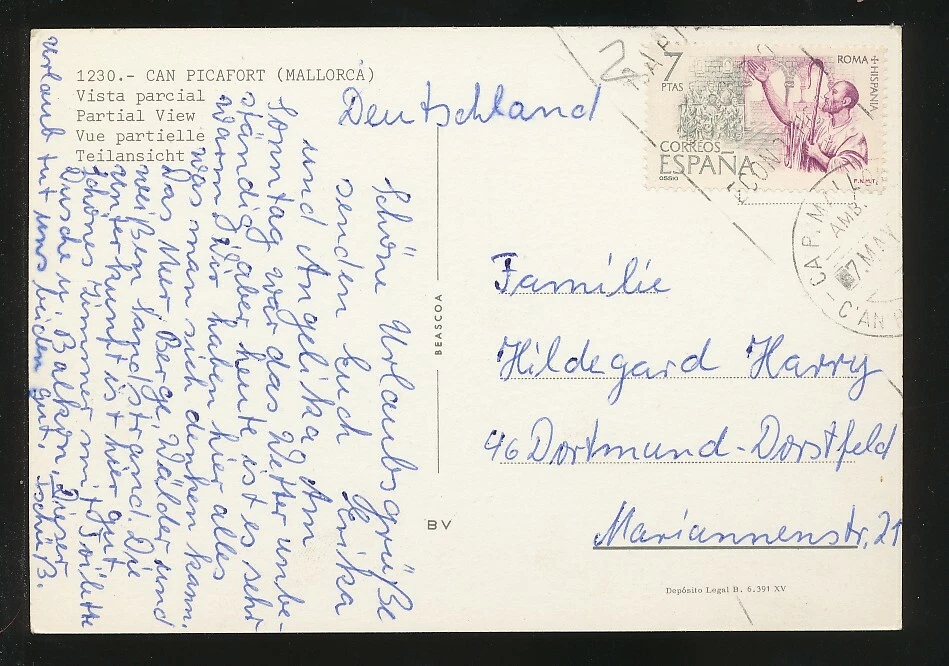 1230.- CAN PICAFORT (MALLORCA)
Vista parcial
Partial View
Vue partielle
Teilansicht
Deutschland
7
PTAS
ROMA + HISPANIA
CORREOS
ESPAÑA
OSSKI
F.N.M.T.
CAP. MALL
AMB.
7. MAY
C'AN P
Schöne Urlaubsgrüße
senden Euch Erika
und Angelika. Am
Sonntag war das Wetter unbe-
ständig, aber heute ist es sehr
warm. Wir haben hier alles
was man sich denken kann.
Das Meer, Berge, Wälder und
weißen Sandstrand. Die
Unterkunft ist hier gut
schönes Zimmer mit Toilette
Dusche u. Balkon. Dieser
Urlaub tut uns beiden gut. Tschüß.
BEASCOA
BV
Familie
Hildegard Harry
46 Dortmund-Dorstfeld
Mariannenstr. 21
Depósito Legal B. 6.391 XV